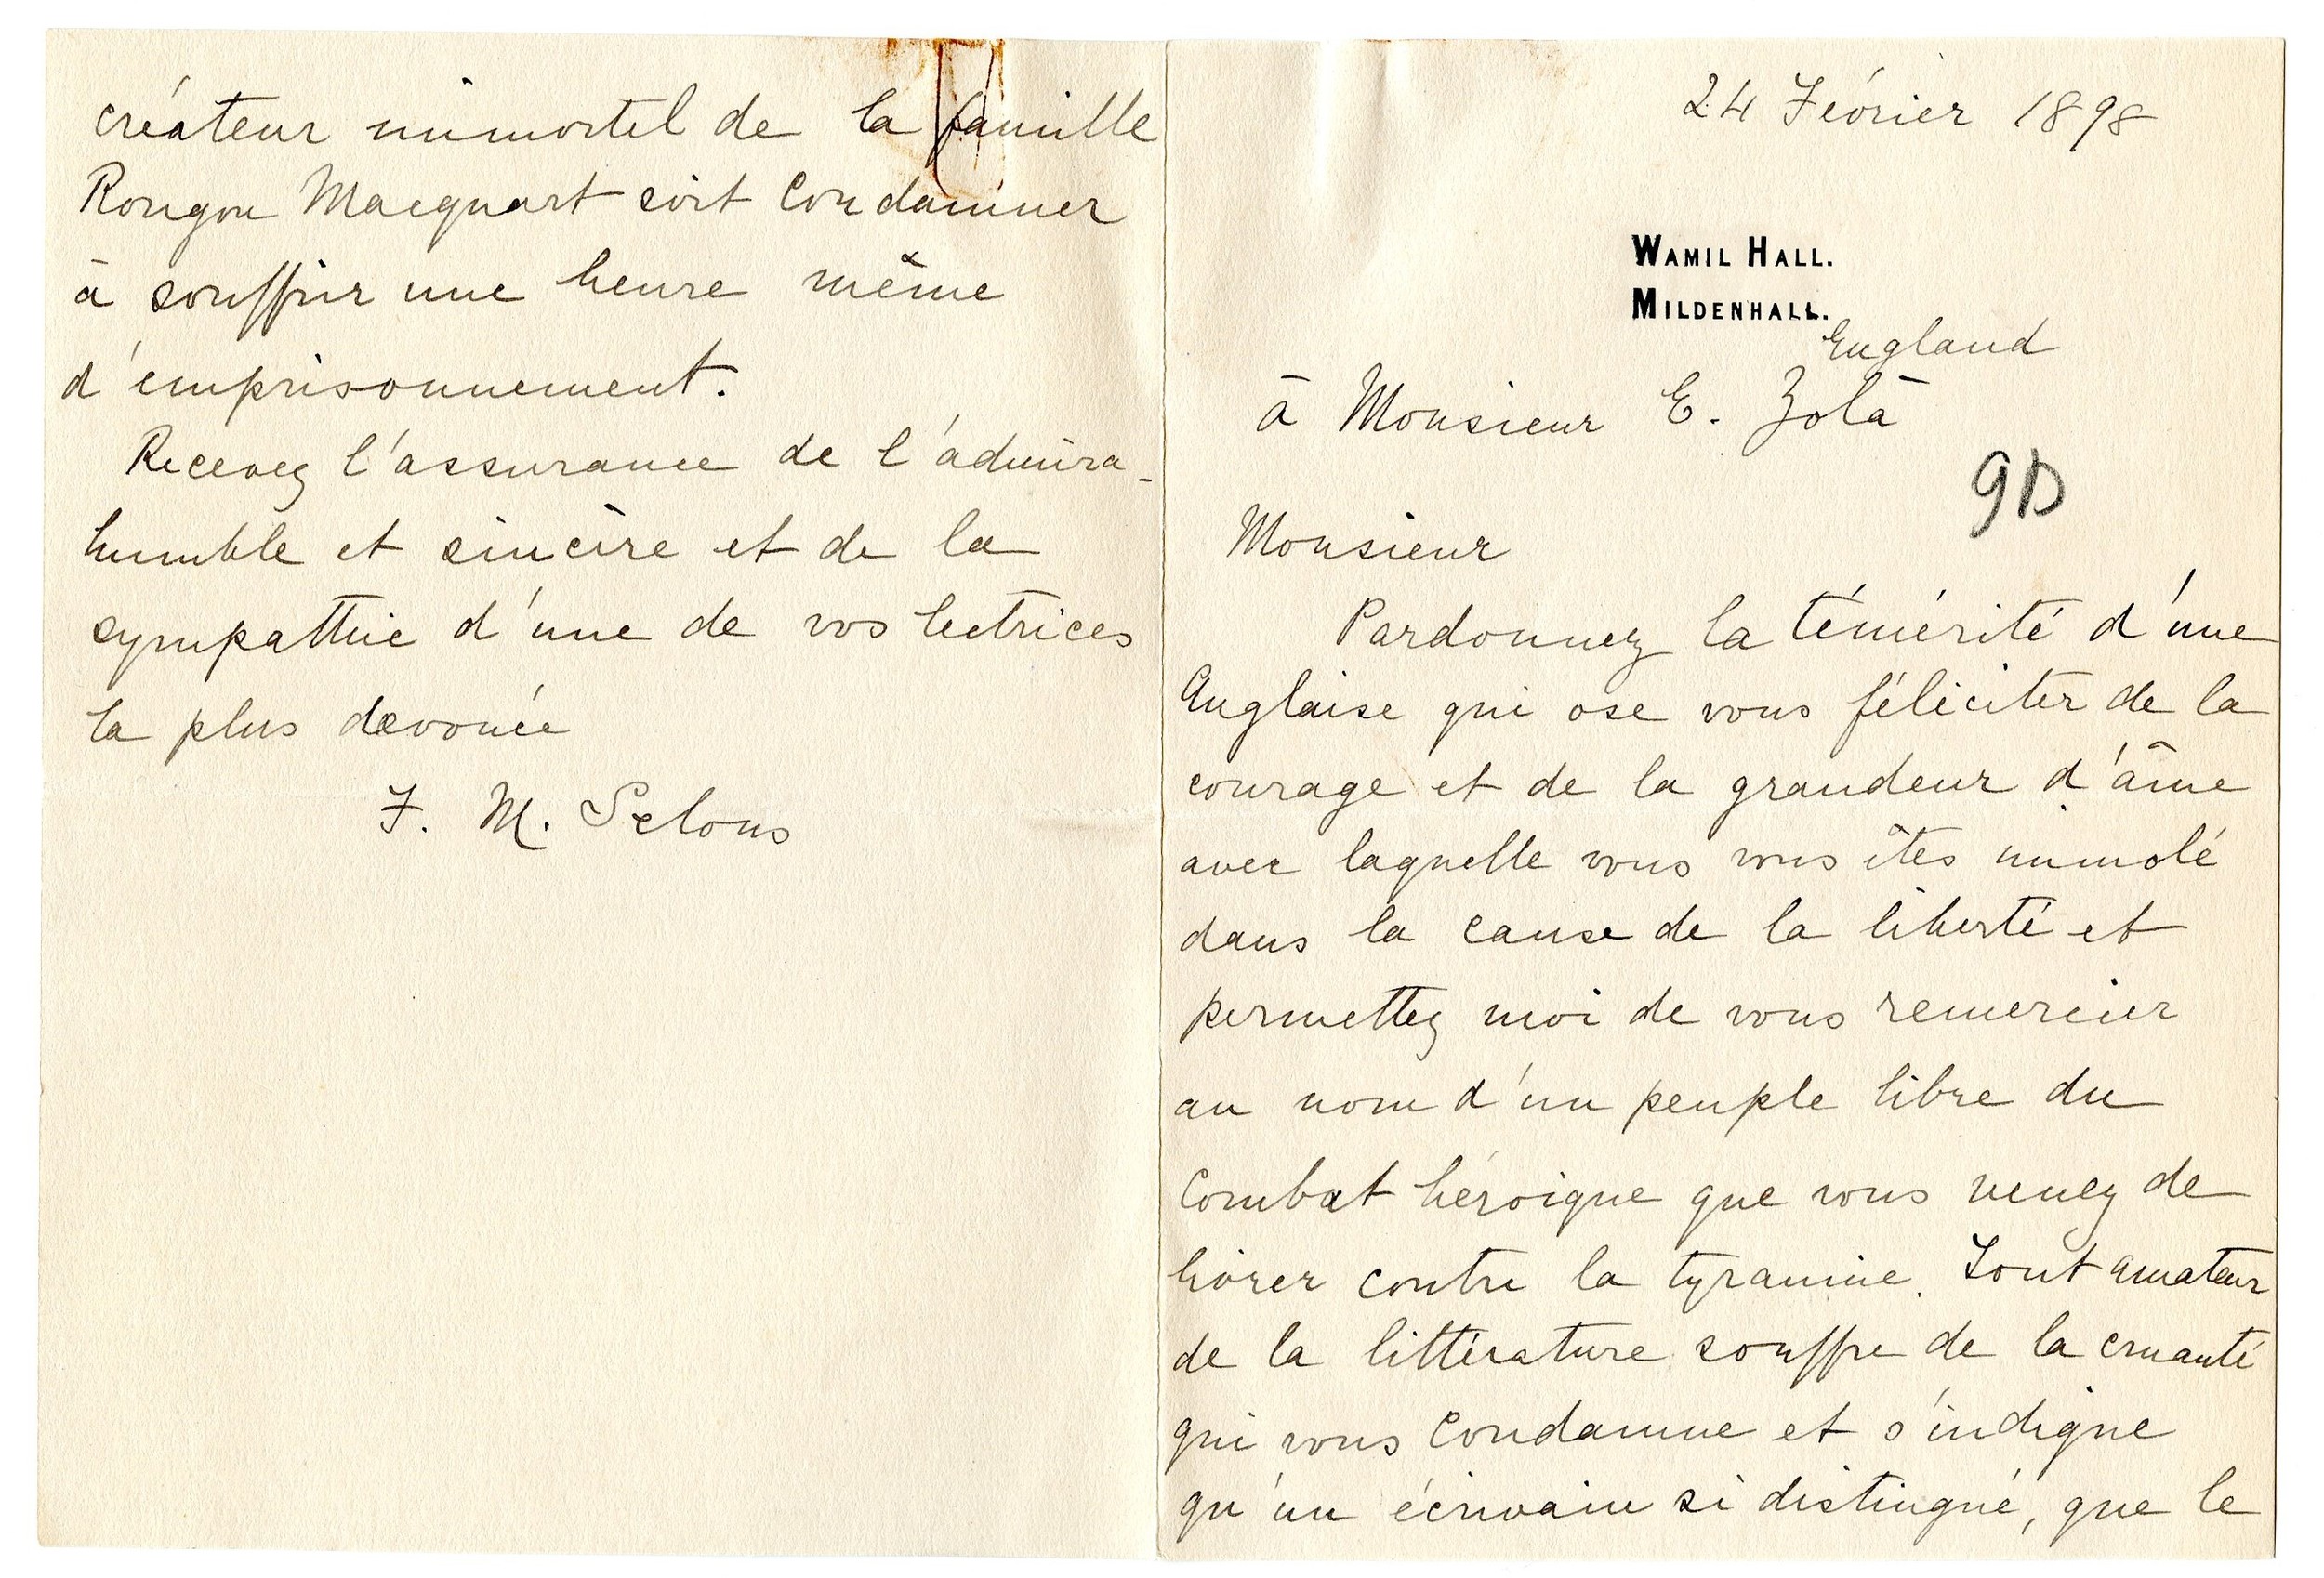 24 Février 1898
WAMIL HALL.
MILDENHALL.
England
à Monsieur E. Zola
9D
Monsieur
Pardonnez la témérité d'une
Anglaise qui ose vous féliciter de la
courage et de la grandeur d'âme
avec laquelle vous vous êtes immolé
dans la cause de la liberté et
permettez moi de vous remercier
au nom d'un peuple libre du
combat héroique que vous venez de
livrer contre la tyrannie. Tout amateur
de la littérature souffre de la cruauté
qui vous condamne et s'indigne
qu'un écrivain si distingué, que le
créateur immortel de la famille
Rougon Macquart soit condamner
à souffrir une heure même
d'emprisonnement.
Recevez l'assurance de l'admira-
humble et sincère et de la
sympathie d'une de vos lectrices
la plus devouée
F. M. Selous